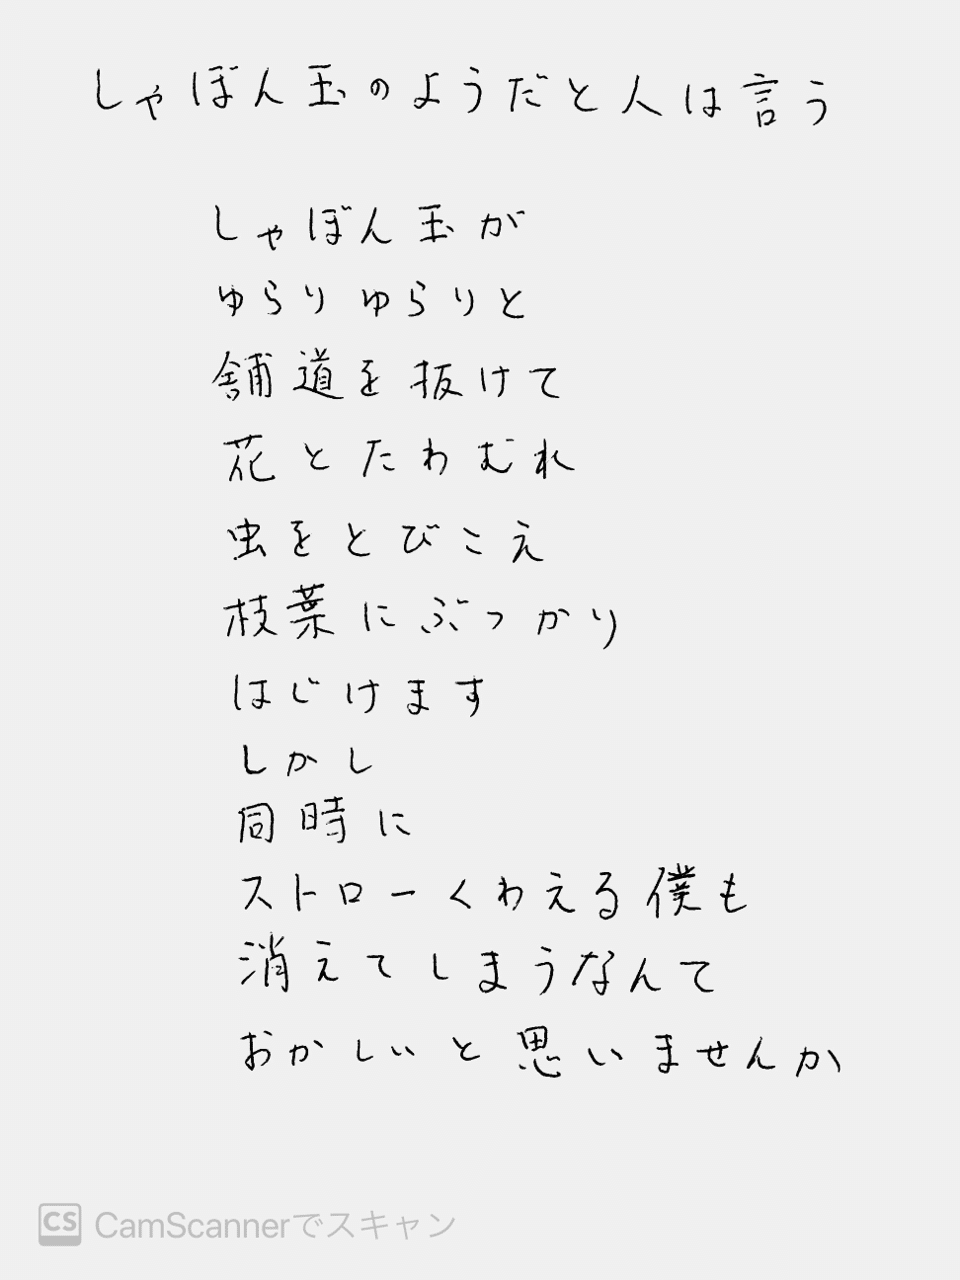 しゃぼん玉のようだと人は言う
しゃぼん玉が
ゆらりゆらりと
舗道を抜けて
花とたわむれ
虫をとびこえ
枝葉にぶつかり
はじけます
しかし
同時に
ストローくわえる僕も
消えてしまうなんて
おかしいと思いませんか
CS CamScannerでスキャン